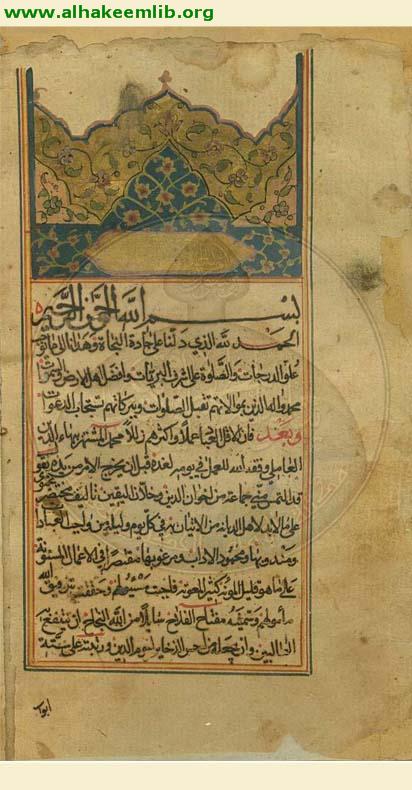 www.alhakeemlib.org
بسم الله الرحمن الرحيم
الحمد لله الذي دلنا على جادة النجاة وهدانا الى ما يوجب
علو الدرجات والصلوة على اشرف البريات وافضل اهل الارض والسموات
محمد واله الذين بموالاتهم تقبل الصلوات وببركاتهم تستجاب الدعوات
وبعد فان اقل العباد عملا واكثرهم زللا محمد المشتهر ببهاء الدين
العاملي وفقه الله للعمل في يومه لغده قبل ان يخرج الامر من يده يقول
قد التمس مني جماعة من اخوان الدين وخلان اليقين تاليف مختصر يحتوي
على ما لا بد لاهل الديانة من الاتيان به في كل يوم وليلة من واجب العبادات
ومندوبها ومحمود الاداب ومرغوبها مقتصرا في الاعمال المسنونة
على ما هو قليل المؤنة كثير المعونة فاجبت مسئولهم وحققت بتوفيق الله
مأمولهم وسميته مفتاح الفلاح سائلا من الله النجاح ان ينتفع به
الطالبين وان يجعله من احسن الذخاير ليوم الدين ورتبته على ستة
ابواب